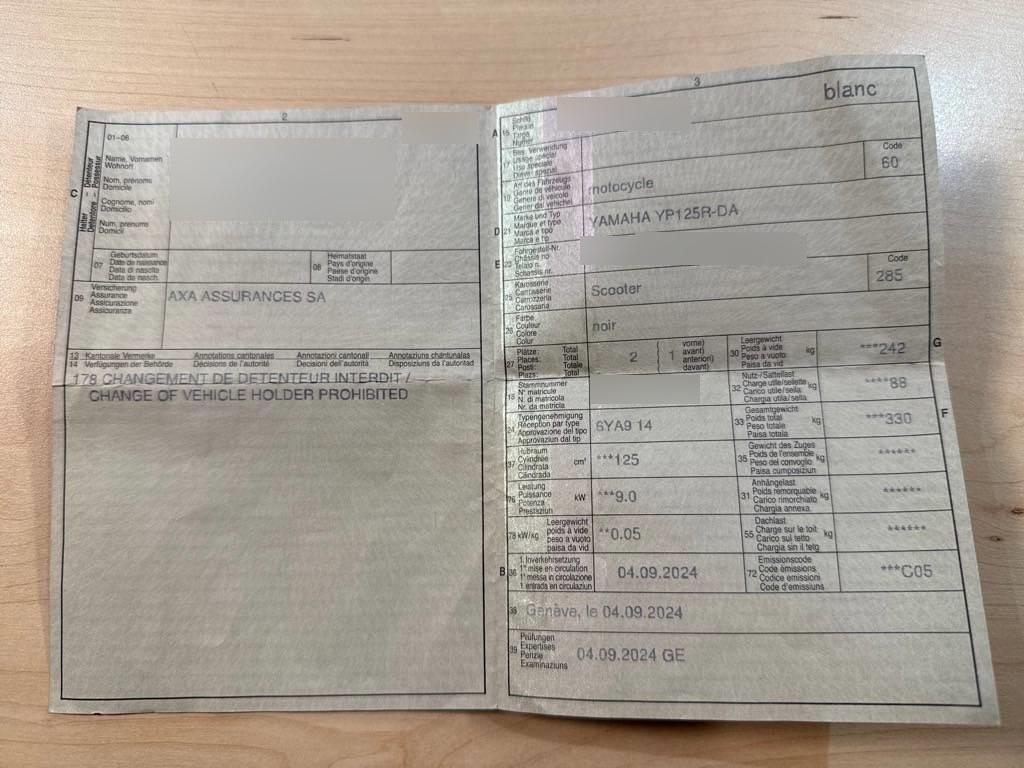 2
C
Halter – Détenteur
Detentore – Possessur
01–06
Name, Vornamen
Wohnort
Nom, prénoms
Domicile
Cognome, nomi
Domicilio
Num, prenums
Domicil
07
Geburtsdatum
Date de naissance
Data di nascita
Data da nasch.
08
Heimatstaat
Pays d'origine
Paese d'origine
Stadi d'origin
09
Versicherung
Assurance
Assicurazione
Assicuranza
AXA ASSURANCES SA
13 Kantonale Vermerke Annotations cantonales Annotazioni cantonali Annotaziuns chantunalas
14 Verfügungen der Behörde Décisions de l'autorité Decisioni dell'autorità Disposiziuns da l'autoritad
178 CHANGEMENT DE DETENTEUR INTERDIT /
CHANGE OF VEHICLE HOLDER PROHIBITED
3
blanc
A 15
Schild
Plaque
Targa
17
Bes. Verwendung
Usage spécial
Uso speciale
Diever spezial
Code
60
19
Art des Fahrzeugs
Genre de véhicule
Genere di veicolo
Gener da vehichel
motocycle
D 21
Marke und Typ
Marque et type
Marca e tipo
Marca e tip
YAMAHA YP125R-DA
E 23
Fahrgestell-Nr.
Châssis no
Telaio n.
Schassis nr.
25
Karosserie
Carrosserie
Carrozzeria
Carossaria
Scooter
Code
285
26
Farbe
Couleur
Colore
Colur
noir
27
Plätze: Total
Places: Total
Posti: Totale
Plazs: Total
2
1
vorne)
avant)
anteriori)
davant)
30
Leergewicht
Poids à vide
Peso a vuoto
Paisa da vid
kg
***242
G
18
Stammnummer
N° matricule
N. di matricola
Nr. da matricla
32
Nutz-/Sattellast
Charge utile/sellette
Carico utile/sella
Chargia utila/sella
kg
****88
24
Typengenehmigung
Réception par type
Approvazione del tipo
Approvaziun dal tip
6YA9 14
33
Gesamtgewicht
Poids total
Peso totale
Paisa totala
kg
***330
F
37
Hubraum
Cylindrée
Cilindrata
Cilindrada
cm³
***125
35
Gewicht des Zuges
Poids de l'ensemble
Peso del convoglio
Paisa cumposiziun
kg
******
76
Leistung
Puissance
Potenza
Prestaziun
kW
***9.0
31
Anhängelast
Poids remorquable
Carico rimorchiato
Chargia annexa
kg
******
78 kW/kg
Leergewicht
poids à vide
peso a vuoto
paisa da vid
**0.05
55
Dachlast
Charge sur le toit
Carico sul tetto
Chargia sin il tetg
kg
******
B 36
1. Inverkehrsetzung
1re mise en circulation
1a messa in circolazione
1. entrada en circulaziun
04.09.2024
72
Emissionscode
Code émissions
Codice emissioni
Code d'emissiuns
***C05
38
Genève, le 04.09.2024
39
Prüfungen
Expertises
Perizie
Examinaziuns
04.09.2024 GE